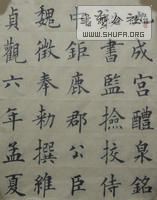 成宮醴泉銘
書監撿挍侍
中鉅鹿郡公臣
魏徵奉勑撰維
貞觀六年孟夏
WWW.SHUFR.ORG